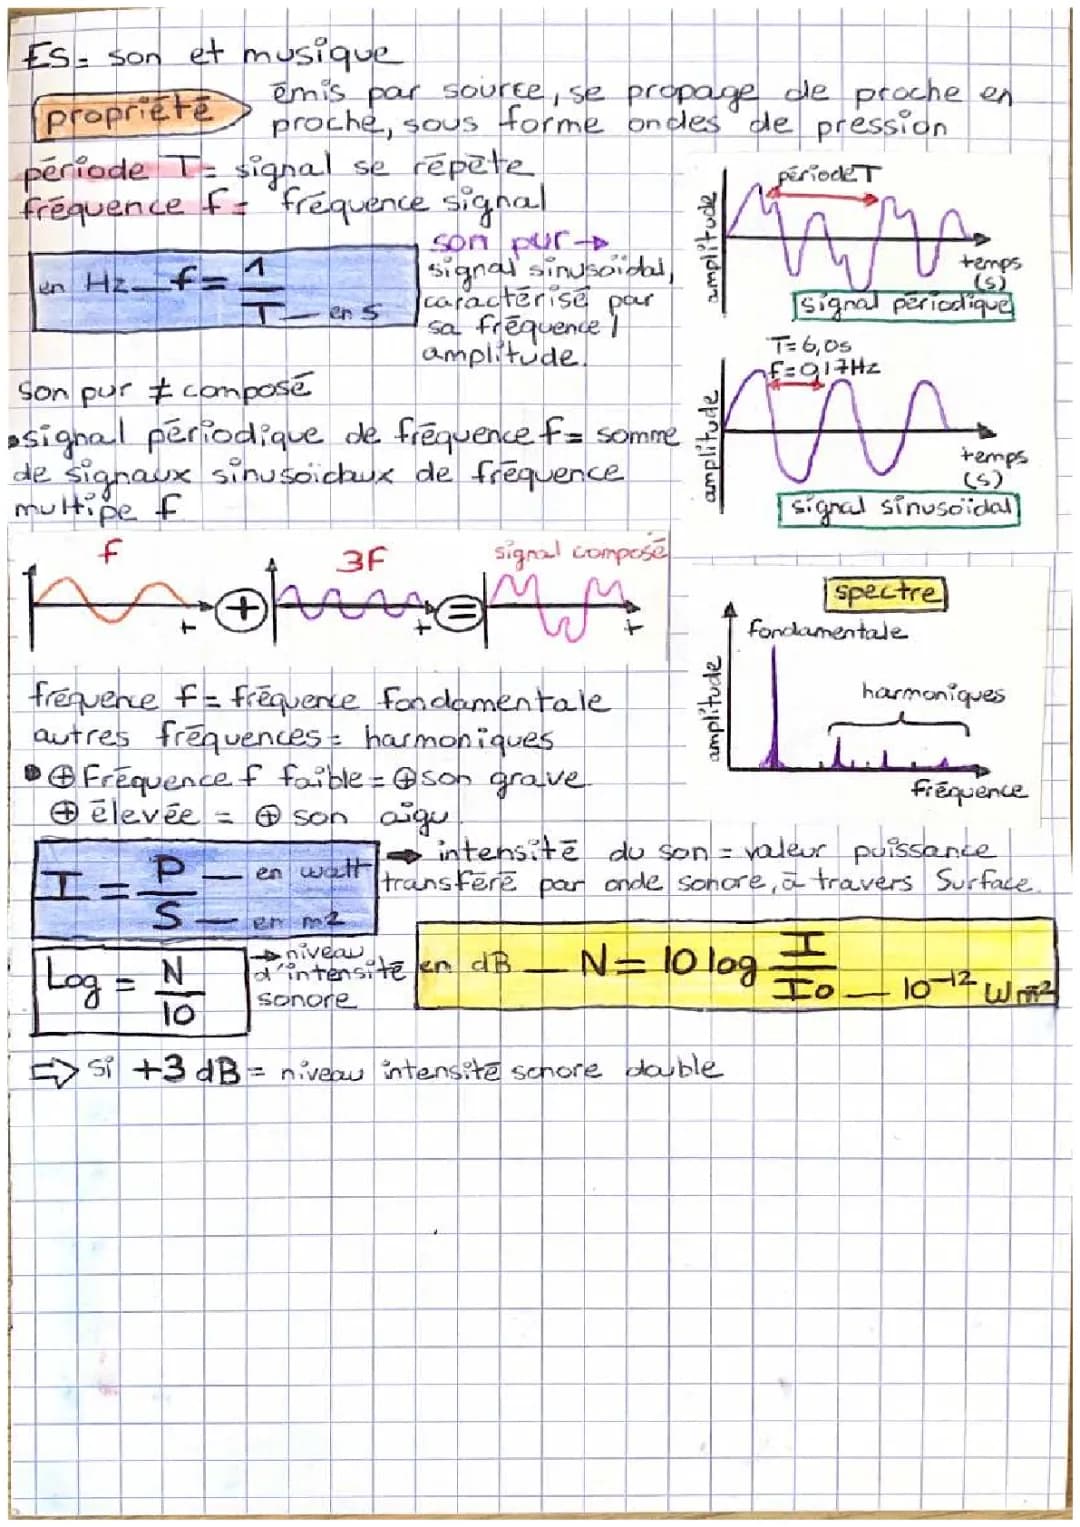 ES= son et musique
propriété
émis par source, se propage de proche en
proche, sous forme ondes de pression
période T= signal se répète
fréquence f= fréquence signal
en Hz — f = 1/T — en s
son pur →
signal sinusoïdal,
caractérisé par
sa fréquence /
amplitude.
période T
amplitude
temps
(s)
signal périodique
T=6,0s
f=0,17Hz
amplitude
temps
(s)
signal sinusoïdal
son pur ≠ composé
•signal périodique de fréquence f= somme
de signaux sinusoïdaux de fréquence
multipe f
f
3F
signal composé
t
+
t
=
t
spectre
fondamentale
harmoniques
amplitude
fréquence
fréquence f= fréquence fondamentale
autres fréquences= harmoniques
• ⊕ Fréquence f faible = ⊕ son grave
⊕ élevée = ⊕ son aigu.
I = P/S — en watt — en m2
→ intensité du son = valeur puissance
transféré par onde sonore, à travers Surface.
Log = N/10
→ niveau
d'intensité
sonore
en dB — N= 10 log I/I0 — 10-12 W m-2
⇒ si +3 dB = niveau intensité sonore double